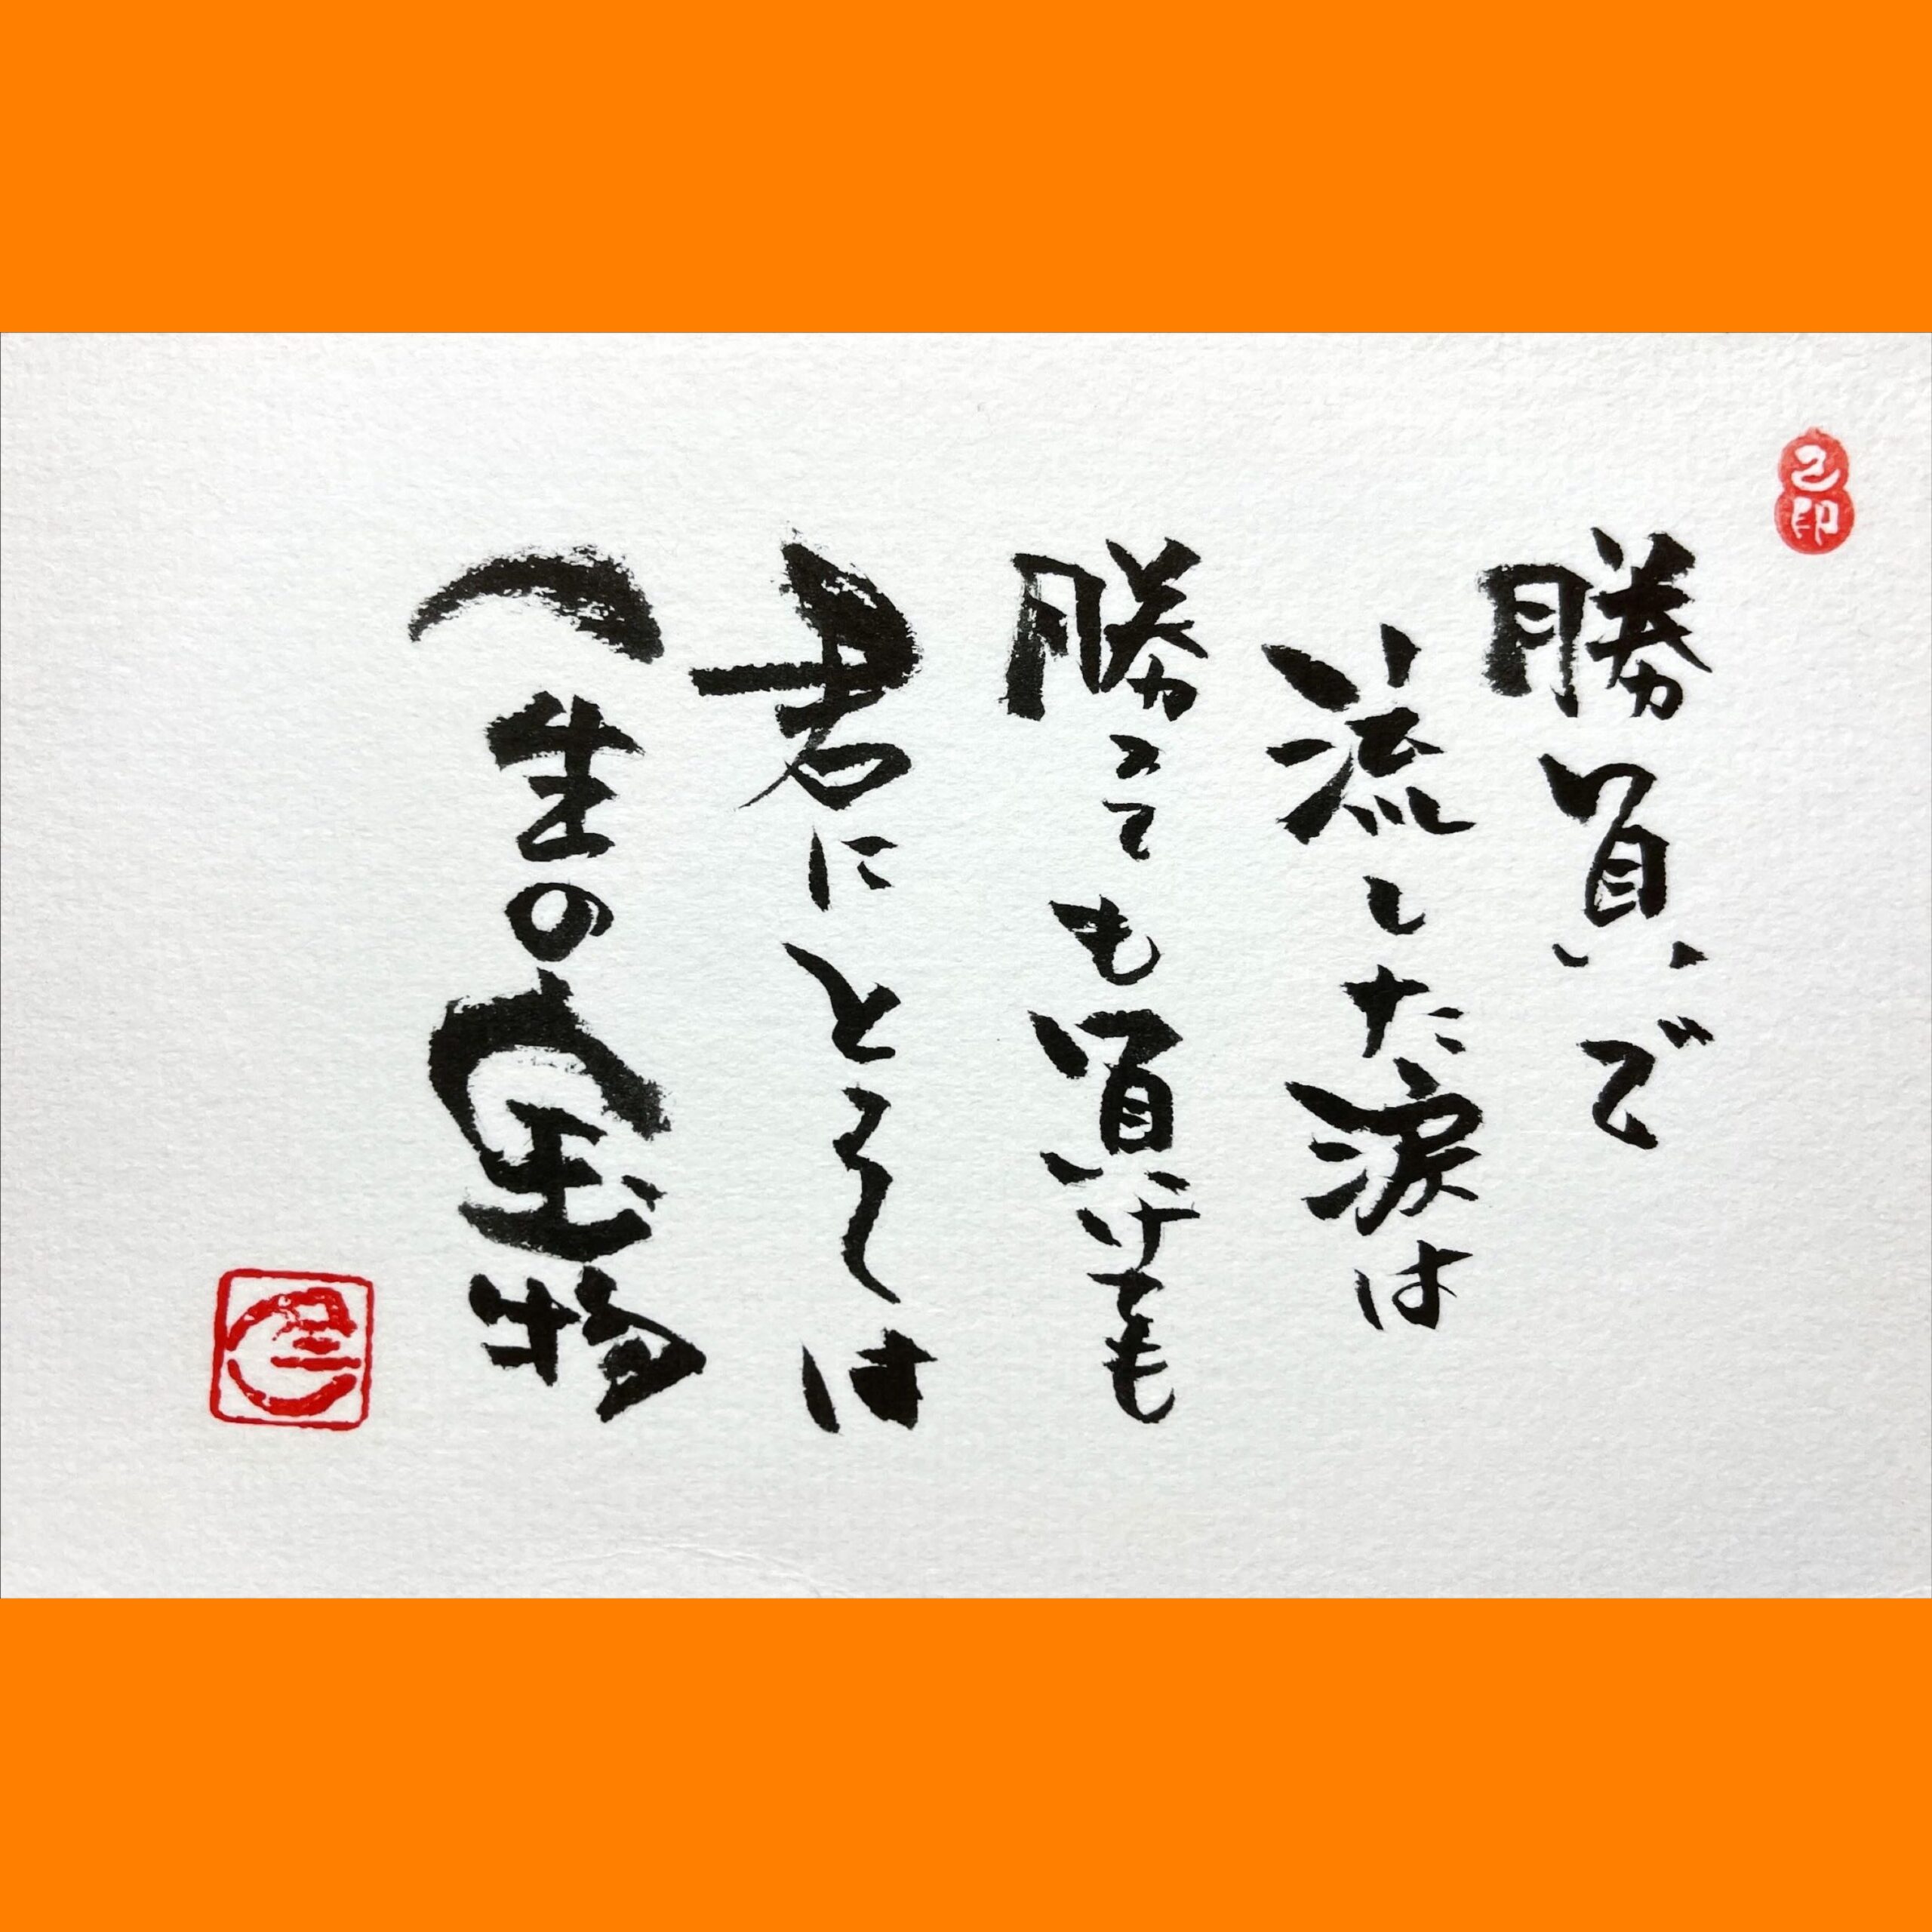 己印
勝負で
流した涙は
勝っても負けても
君にとっては
一生の宝物